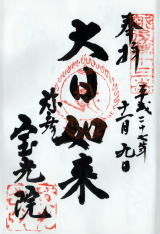 奉拝
平成二十七年
十一月九日
大日如来
弥彦
宝光院